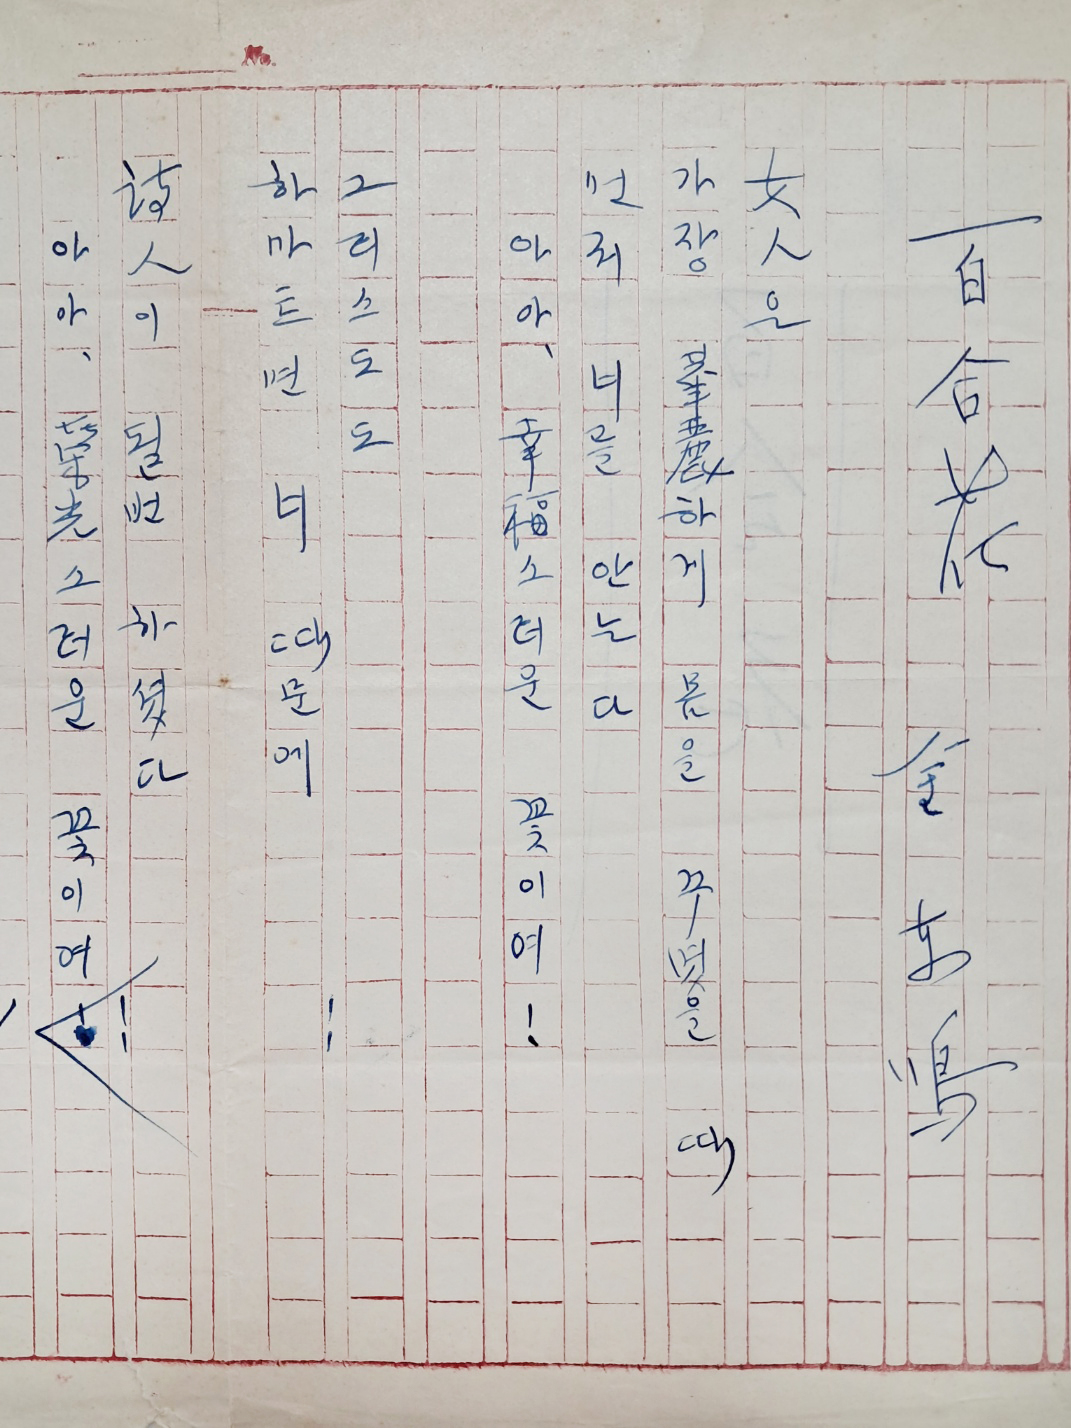 No.
百合花 金東鳴
女人은
가장 華麗하게 몸을 꾸몃을 때
먼저 너를 안는다
아아、 幸福스러운 꽃이여!
그리스도도
하마트면 너 때문에
詩人이 될번 하셧다
아아、 榮光스러운 꽃이여!